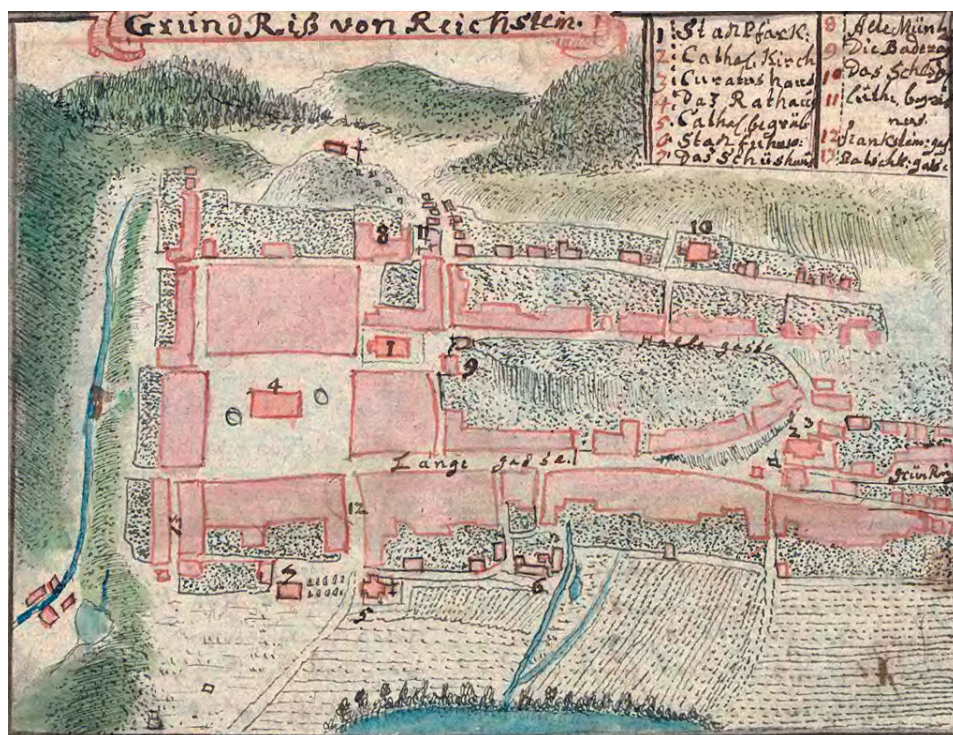 Grund Riß von Reichstein.
1 Stat Pfark:
2: Cathol: Kirch
3: Curatus haus
4: Daß Rathaus
5: Cathol begräb
6 Stat
7: Das Schüshaus
8 Alte Müntz
9 Die Bade
10 Das Schloß
11 Luthe: begräb
nus.
12 Frankstein: gas
13 Patschk: gasse
10
8 11
1
Halbe gasse
9
4
3
2
Lange gasse.
grün Ring
12
13
7
5
6